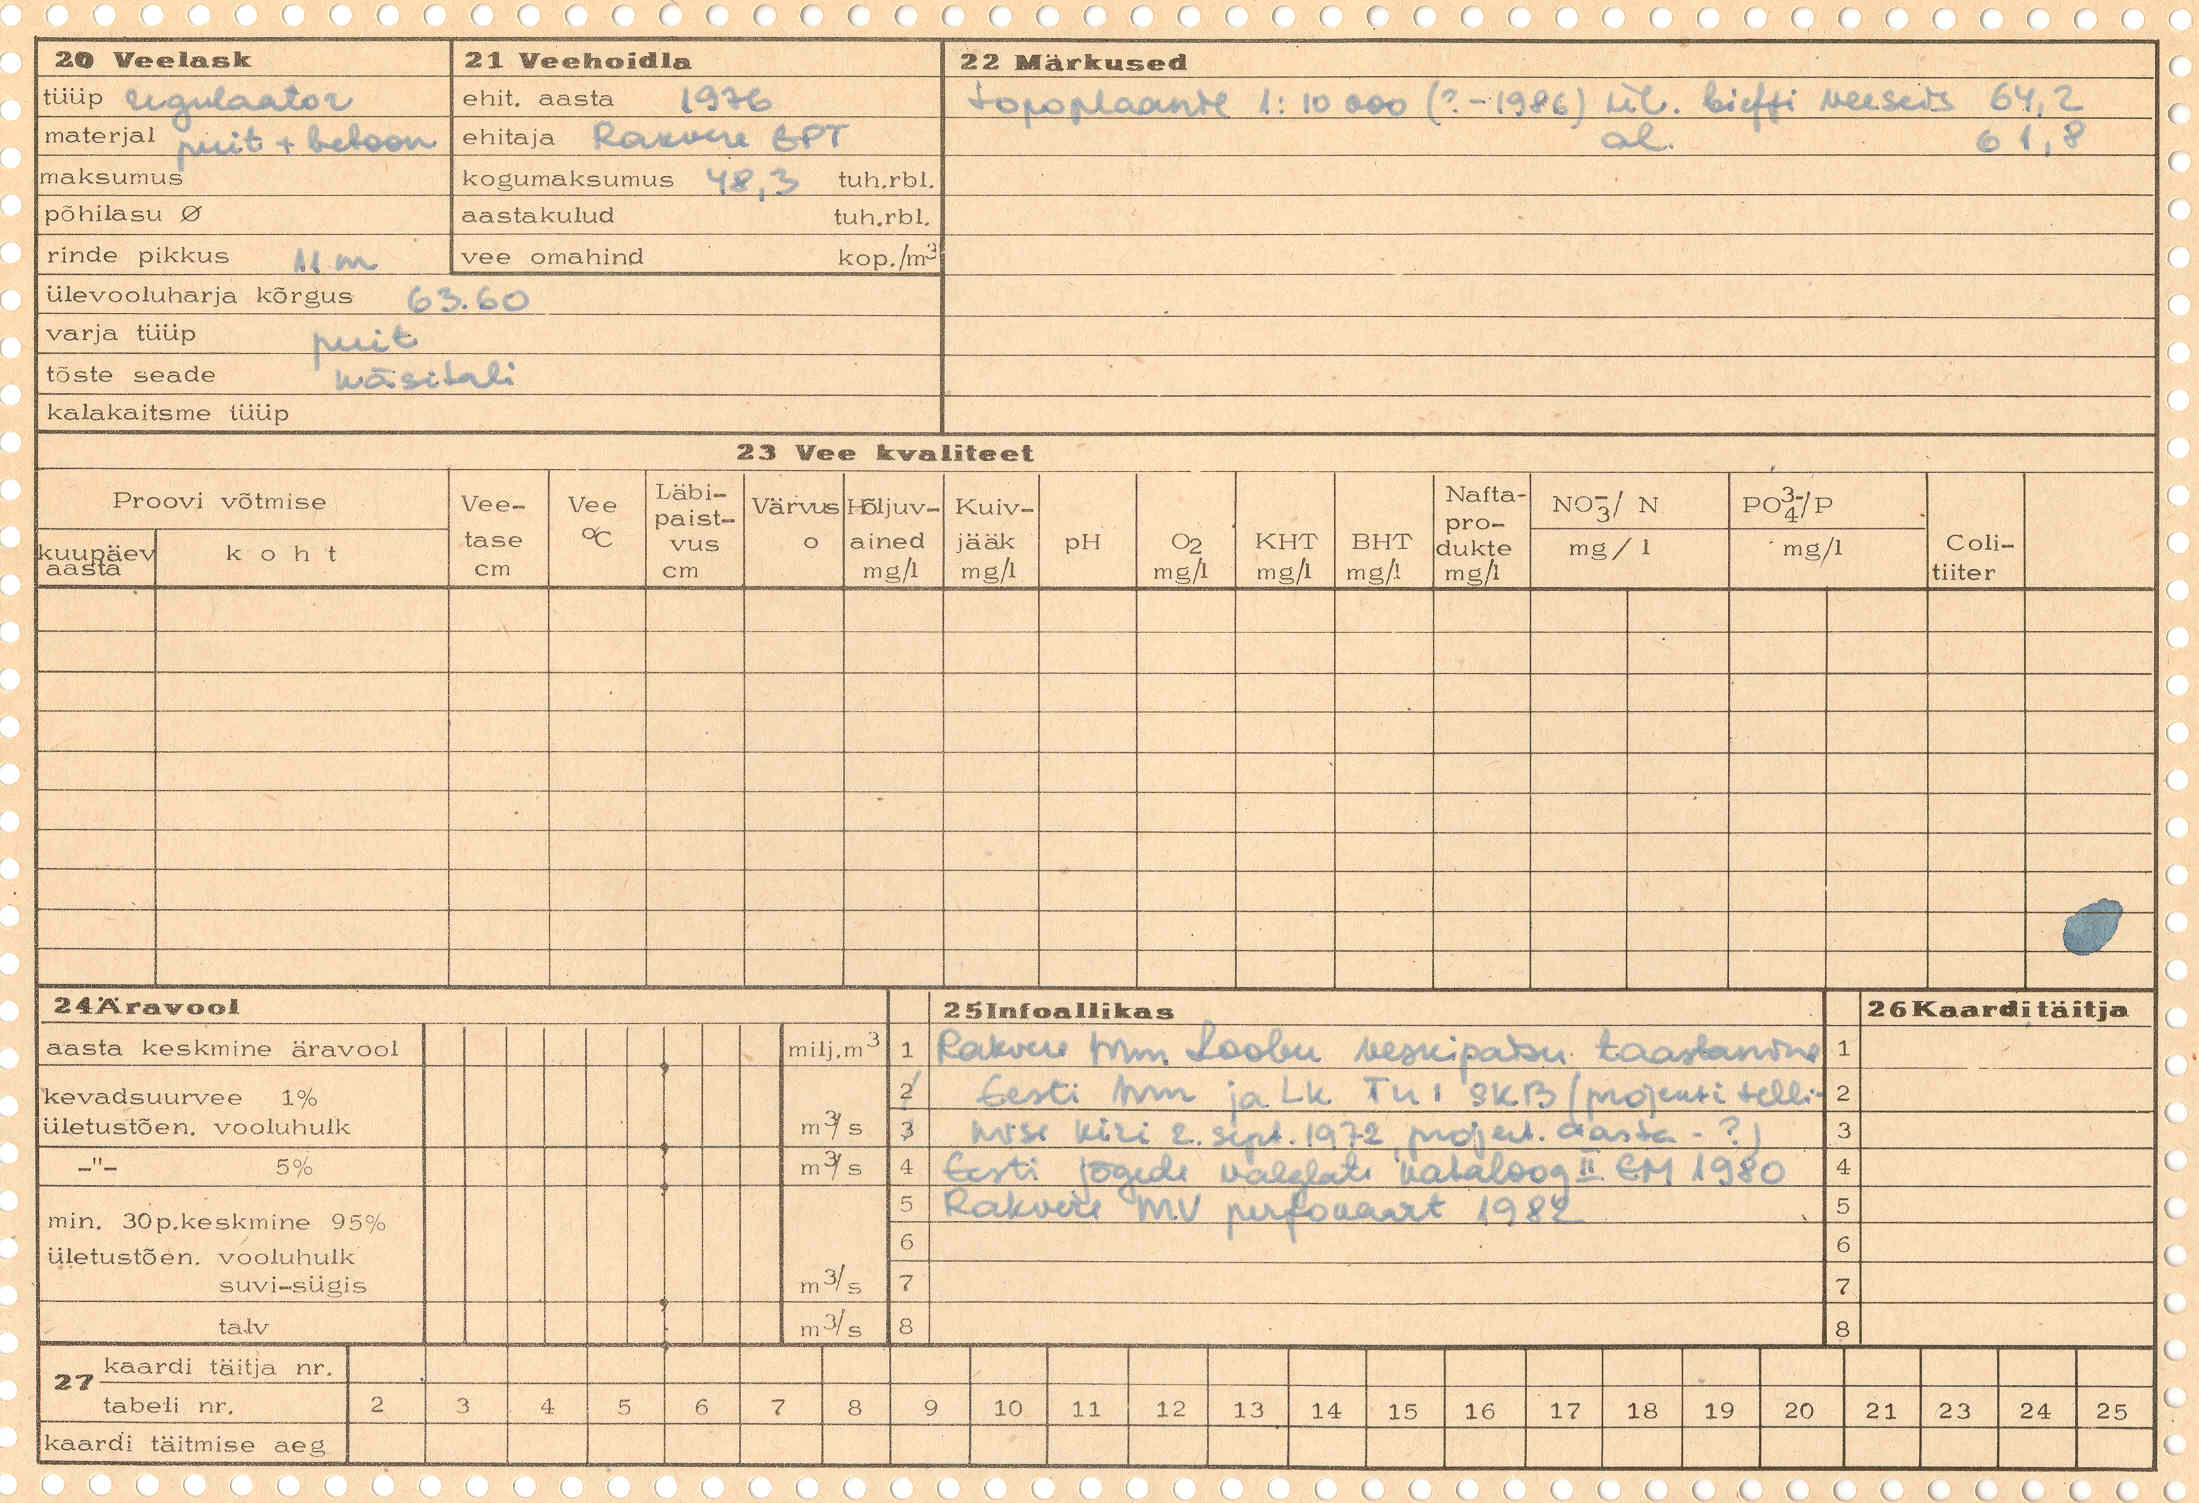 20 Veelask
tüüp regulaator
materjal puit + betoon
maksumus
põhilasu Ø
rinde pikkus 11 m
ülevooluharja kõrgus 63.60
varja tüüp puit
tõste seade käsitali
kalakaitsme tüüp
21 Veehoidla
ehit. aasta 1976
ehitaja Rakvere EPT
kogumaksumus 48,3 tuh.rbl.
aastakulud tuh.rbl.
vee omahind kop./m³
22 Märkused
topoplaanil 1:10 000 (?-1986) ül. bieffi veeseis 64,2
al. 61,8
23 Vee kvaliteet
Proovi võtmise
kuupäev aasta
koht
Vee-tase cm
Vee °C
Läbi-paist-vus cm
Värvus o
Hõljuv-ained mg/l
Kuiv-jääk mg/l
pH
O2 mg/l
KHT mg/l
BHT mg/l
Nafta-pro-dukte mg/l
NO3-/ N mg/l
PO4 3-/P mg/l
Coli-tiiter
24 Äravool
aasta keskmine äravool milj.m³
kevadsuurvee 1%
ületustõen. vooluhulk m³/s
-"- 5% m³/s
min. 30p.keskmine 95%
ületustõen. vooluhulk
suvi-sügis m³/s
talv m³/s
25 Infoallikas
1 Rakvere Mm. Loobu veskipaisu taastamine
2 Eesti Mm ja Lk TUI SKB (projekti telli-
3 mise kiri 2. sept. 1972, projekt. aasta - ?)
4 Eesti jõgede valglate kataloog II EM 1980
5 Rakvere MV perfokaart 1982
6
7
8
26 Kaardi täitja
1
2
3
4
5
6
7
8
27 kaardi täitja nr.
tabeli nr. 2 3 4 5 6 7 8 9 10 11 12 13 14 15 16 17 18 19 20 21 23 24 25
kaardi täitmise aeg